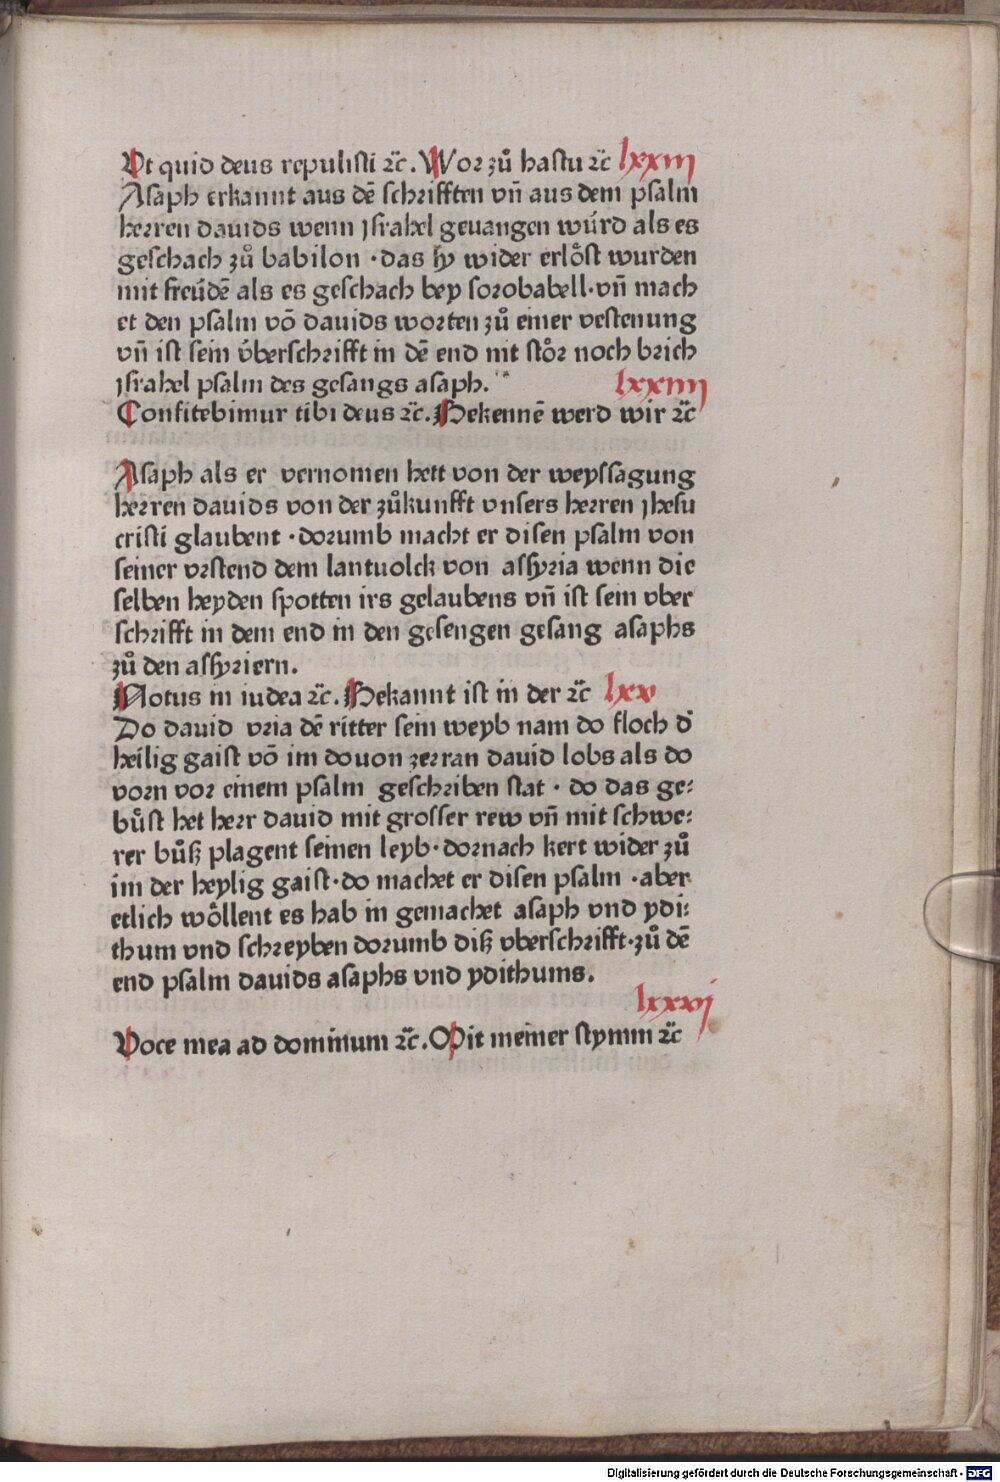 Vt quid deus repulisti ⁊c̈. Wor zů hastu ⁊c̈ lxxiij
Asaph erkannt aus dē schrifften vn̄ aus dem psalm
herren dauids wenn jsrahel geuangen wúrd als es
geschach zů babilon · das sy wider erlöst wurden
mit freúdē als es geschach bey sorobabell · vn̄ mach
et den psalm vō dauids worten zů einer vestenung
vn̄ ist sein v́berschrifft in dē end nit stör noch brich
jsrahel psalm des gesangs asaph.
lxxiiij
Confitebimur tibi deus ⁊c̈. Bekennē werd wir ⁊c̈
Asaph als er vernomen hett von der weyssagung
herren dauids von der zůkunfft vnsers herren jhesu
cristi glaubent · dorumb macht er disen psalm von
seiner vrstend dem lantuolck von assyria wenn die
selben heyden spotten irs gelaubens vn̄ ist sein vber
schrifft in dem end in den gesengen gesang asaphs
zů den assyriern.
Notus in iudea ⁊c̈. Bekannt ist in der ⁊c̈ lxxv
Do dauid vria dē ritter sein weyb nam do floch d̄
heilig gaist vō im douon zerran dauid lobs als do
vorn vor einem psalm geschriben stat · do das ge⸗
bůst het herr dauid mit grosser rew vn̄ mit schwe⸗
rer bůß plagent seinen leyb · dornach kert wider zů
im der heylig gaist · do machet er disen psalm · aber
etlich wöllent es hab in gemachet asaph vnd ydi⸗
thum vnd schreyben dorumb diß vberschrifft · zů dē
end psalm dauids asaphs vnd ydithums.
lxxvj
Voce mea ad dominum ⁊c̈. Mit meiner stymm ⁊c̈
Digitalisierung gefördert durch die Deutsche Forschungsgemeinschaft - DFG